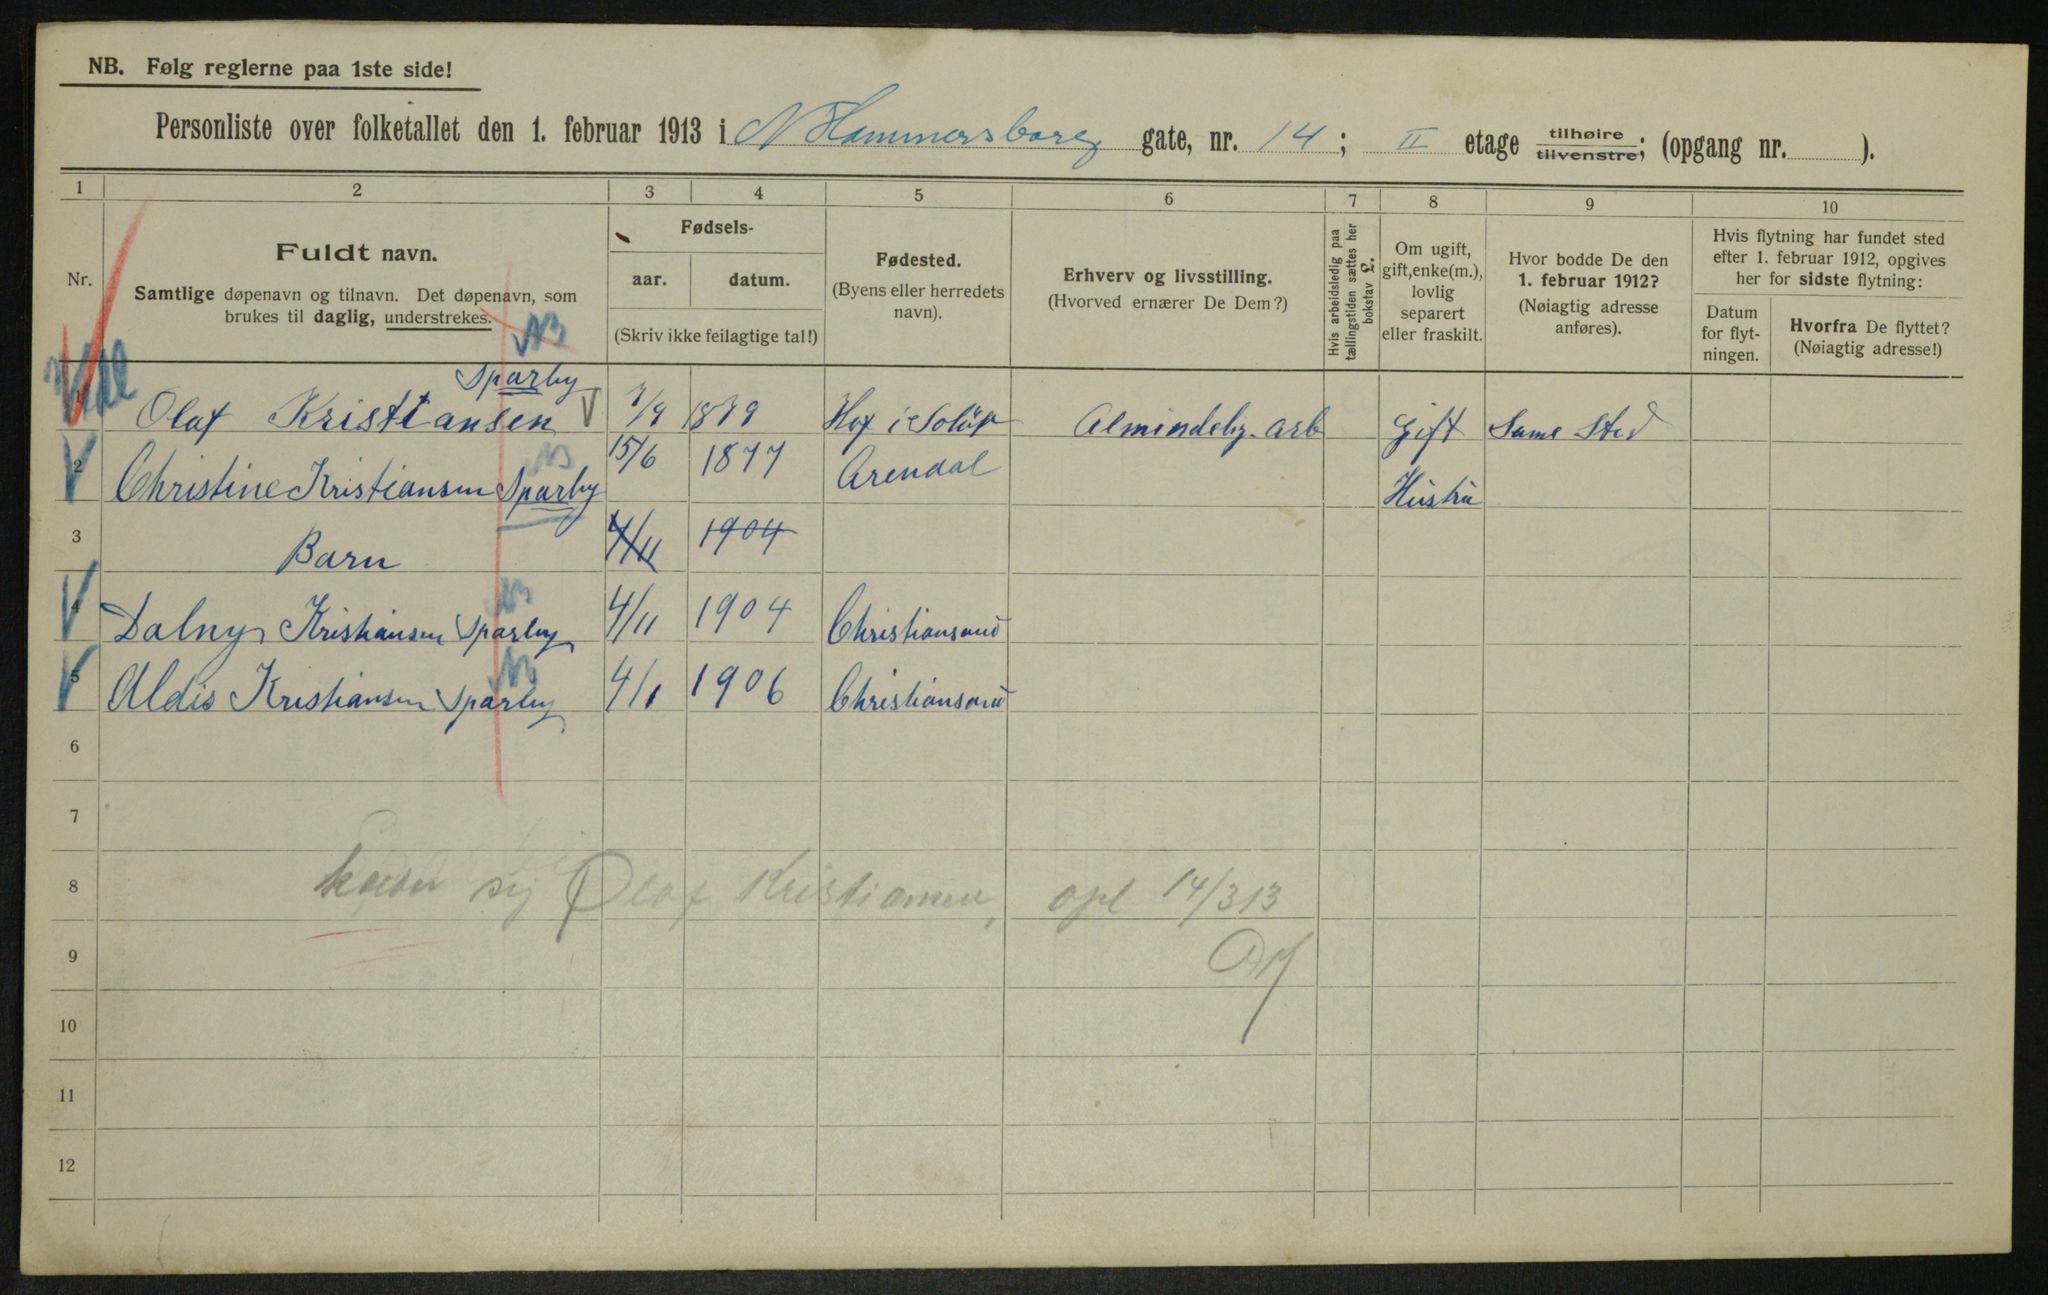 NB. Følg reglerne paa 1ste side!
Personliste over folketallet den 1. februar 1913 i N Hammersborg gate, nr. 14; II etage tilhøire tilvenstre; (opgang nr. ).
1 2 3 4 5 6 7 8 9 10
Nr.
Fuldt navn.
Samtlige døpenavn og tilnavn. Det døpenavn, som
brukes til daglig, understrekes.
Fødsels-
aar. datum.
(Skriv ikke feilagtige tal!)
Fødested.
(Byens eller herredets
navn).
Erhverv og livsstilling.
(Hvorved ernærer De Dem?)
Hvis arbeidsledig paa
tællingstiden sættes her
bokstav £.
Om ugift,
gift, enke(m.),
lovlig
separert
eller fraskilt.
Hvor bodde De den
1. februar 1912?
(Nøiagtig adresse
anføres).
Hvis flytning har fundet sted
efter 1. februar 1912, opgives
her for sidste flytning:
Datum
for flyt-
ningen.
Hvorfra De flyttet?
(Nøiagtig adresse!)
NB
Sparby
1 Olaf Kristiansen 7/9 1879 Hof i Solør Almindelig. arb Gift Same Sted
NB
2 Christine Kristiansen Sparby 15/6 1877 Arendal Hustru
3 Barn 4/11 1904
NB
4 Dalny Kristiansen Sparby 4/11 1904 Christiansand
NB
5 Aldis Kristiansen Sparby 4/1 1906 Christiansand
6
7
8 kalder sig Olaf Kristiansen, opl 14/3 13
9
10
11
12